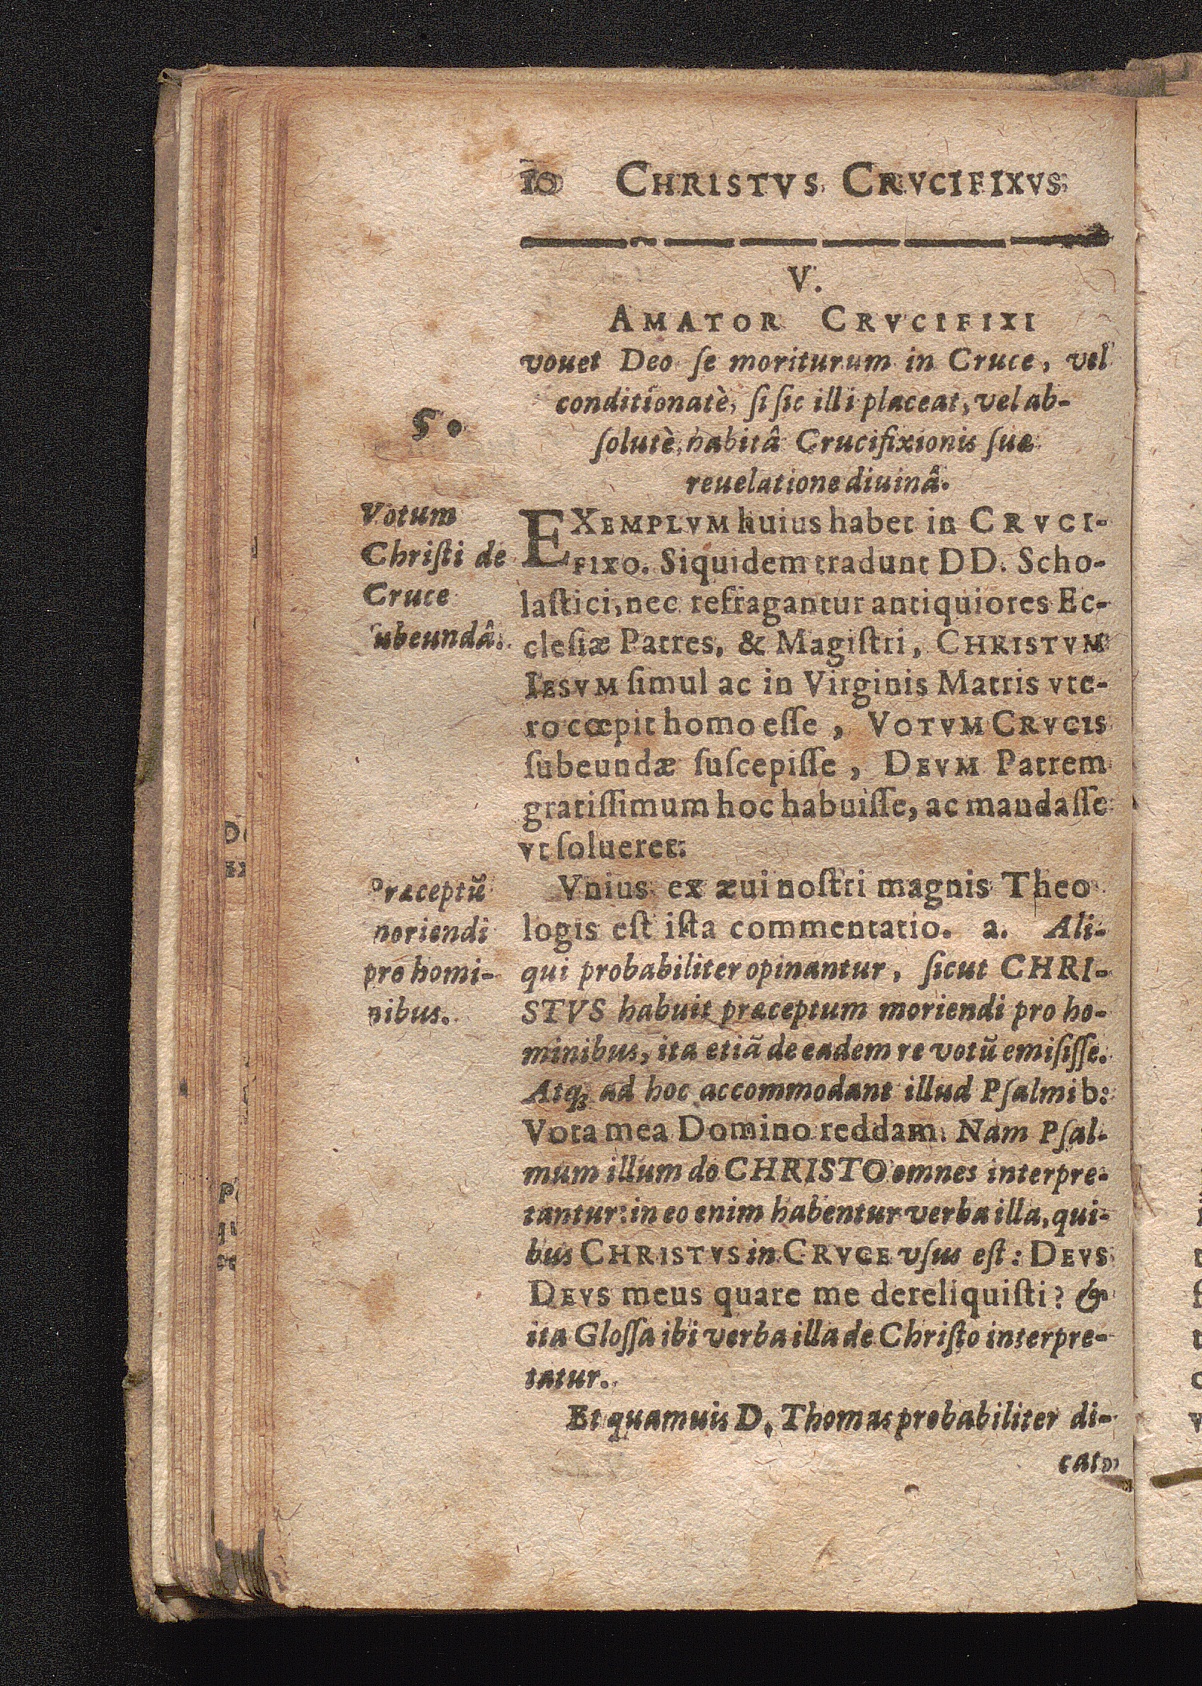 10 CHRISTVS CRVCIFIXVS
V.
AMATOR CRVCIFIXI
vouet Deo ſe moriturum in Cruce, vel
conditionatè, ſi ſic illi placeat, vel ab-
ſolutè, habitâ Crucifixionis ſuæ
reuelatione diuinâ.
5.
Votum
Chriſti de
Cruce
ſubeundâ.
EXEMPLVM huius habet in CRVCI-
FIXO. Siquidem tradunt DD. Scho-
laſtici, nec refragantur antiquiores Ec-
cleſiæ Patres, & Magiſtri, CHRISTVM
IESVM ſimul ac in Virginis Matris vte-
ro cœpit homo eſſe, VOTVM CRVCIS
ſubeundæ ſuſcepiſſe, DEVM Patrem
gratiſſimum hoc habuiſſe, ac mandaſſe
vt ſolueret.
Præceptũ
moriendi
pro homi-
nibus.
Vnius ex æui noſtri magnis Theo
logis eſt iſta commentatio. a. Ali-
qui probabiliter opinantur, ſicut CHRI-
STVS habuit præceptum moriendi pro ho-
minibus, ita etiã de eadem re votũ emiſiſſe.
Atq; ad hoc accommodant illud Pſalmi b:
Vota mea Domino reddam. Nam Pſal-
mum illum de CHRISTO omnes interpre-
tantur: in eo enim habentur verba illa, qui-
bus CHRISTVS in CRVCE vſus eſt: DEVS
DEVS meus quare me dereliquiſti? &
ita Gloſſa ibi verba illa de Chriſto interpre-
tatur.
Et quamuis D. Thomas probabiliter di-
cat